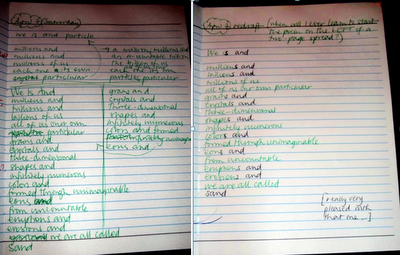 We is and particle
millions and
millions and
millions of us
each one its own
crystal particular
We is And
millions and
trillions and
billions of us
all of us our own
particular
grains and
crystals and
three-dimensional
shapes and
infinitely numerous
colors and
formed through unimaginable
eons and
from uncountable
eruptions and
erosions and
we are all called
Sand
grains and
crystals and
Three-dimensional
shapes and
infinitely numerous
colors and formed
eons and
(when will I ever learn to start
the poem on the LEFT of a
two-page spread!)
We is and
millions and
billions and
millions of us
all of us our own particular
grains and
crystals and
three-dimensional
shapes and
infinitely numerous
colors and
formed through unimaginable
eons and
from uncountable
eruptions and
erosions and
we are all called
sand
[really very
pleased with
that one...]